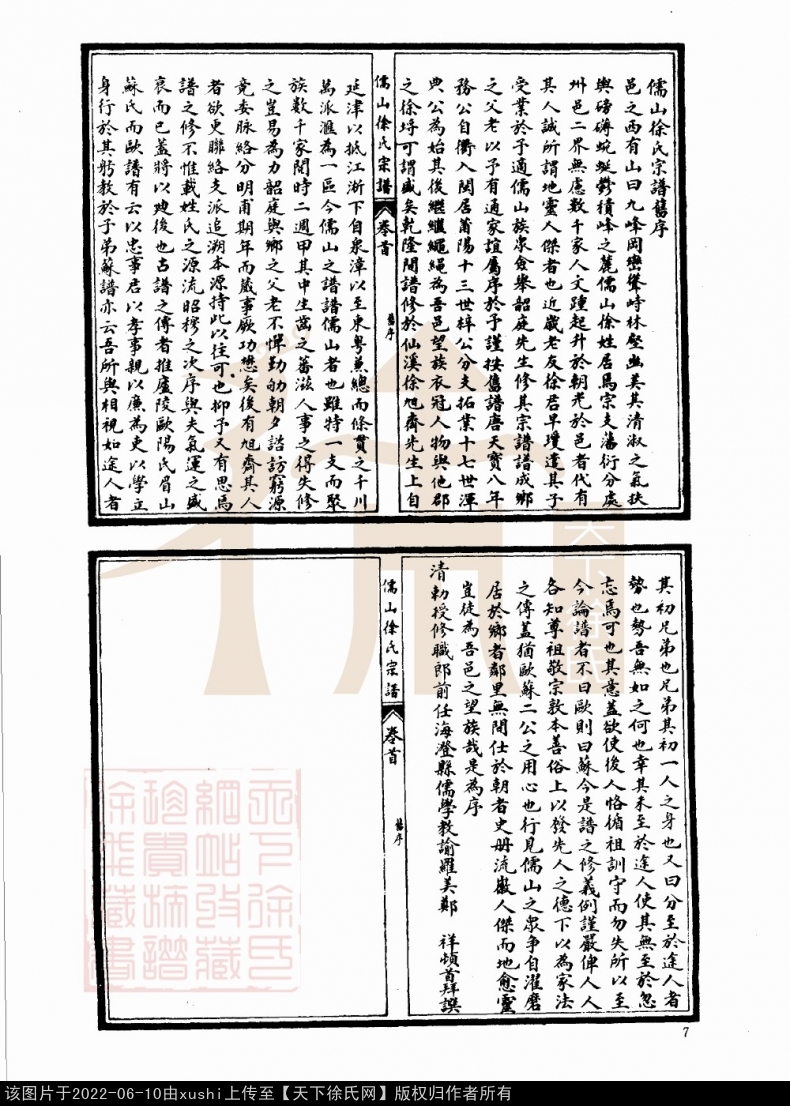 儒山徐氏宗譜舊序
邑之西有山曰九峰岡巒聳峙林壑幽美其清淑之氣扶
輿磅礴蜿蜒鬱積峰之麓儒山徐姓居焉宗支蕃衍分處
州邑二界無慮數千家人文踵起升於朝光於邑者代有
其人誠所謂地靈人傑者也近歲老友徐君早瓊遣其子
受業於予適儒山族眾僉舉韶庭先生修其宗譜譜成鄉
之父老以予有通家誼屬序於予謹按舊譜唐天寶八年
務公自衢入閩居莆陽十三世梓公分支拓業十七世渾
典公為始其後繼繼繩繩為吾邑望族衣冠人物與他郡
之徐埒可謂盛矣乾隆間譜修於仙溪徐旭齋先生上自
儒山徐氏宗譜 卷首 舊序
延津以抵江浙下自泉漳以至東粵兼總而條貫之千川
萬派滙為一區今儒山之譜譜儒山者也雖特一支而聚
族數千家閱時二週甲其中生齒之蕃滋人事之得失修
之豈易為力韶庭與鄉之父老不憚勤劬朝夕諮訪窮源
竟委脉絡分明甫期年而蕆事厥功懋矣後有旭齋其人
者欲更聯絡支派追溯本源持此以往可也抑予又有思焉
譜之修不惟載姓氏之源流昭穆之次序與夫氣運之盛
衰而已蓋將以逮後也古譜之傳者推廬陵歐陽氏眉山
蘇氏而歐譜有云以忠事君以孝事親以廉為吏以學立
身行於其躬教於子弟蘇譜亦云吾所與相視如途人者
其初兄弟也兄弟其初一人之身也又曰分至於途人者
勢也勢吾無如之何也幸其未至於途人使其無至於忽
忘焉可也其意蓋欲使後人恪循祖訓守而勿失所以至
今論譜者不曰歐則曰蘇今是譜之修義例謹嚴俾人人
各知尊祖敬宗敦本善俗上以發先人之德下以為家法
之傳蓋猶歐蘇二公之用心也行見儒山之眾爭自濯磨
居於鄉者鄰里無間仕於朝者史册流徽人傑而地愈靈
豈徒為吾邑之望族哉是為序
清勅授修職郎前任海澄縣儒學教諭羅美鄭 祥頓首拜譔
儒山徐氏宗譜 卷首 舊序
7
天下徐氏
天下徐氏網站收藏珍貴族譜徐華藏書
该图片于2022-06-10由xushi上传至【天下徐氏网】版权归作者所有